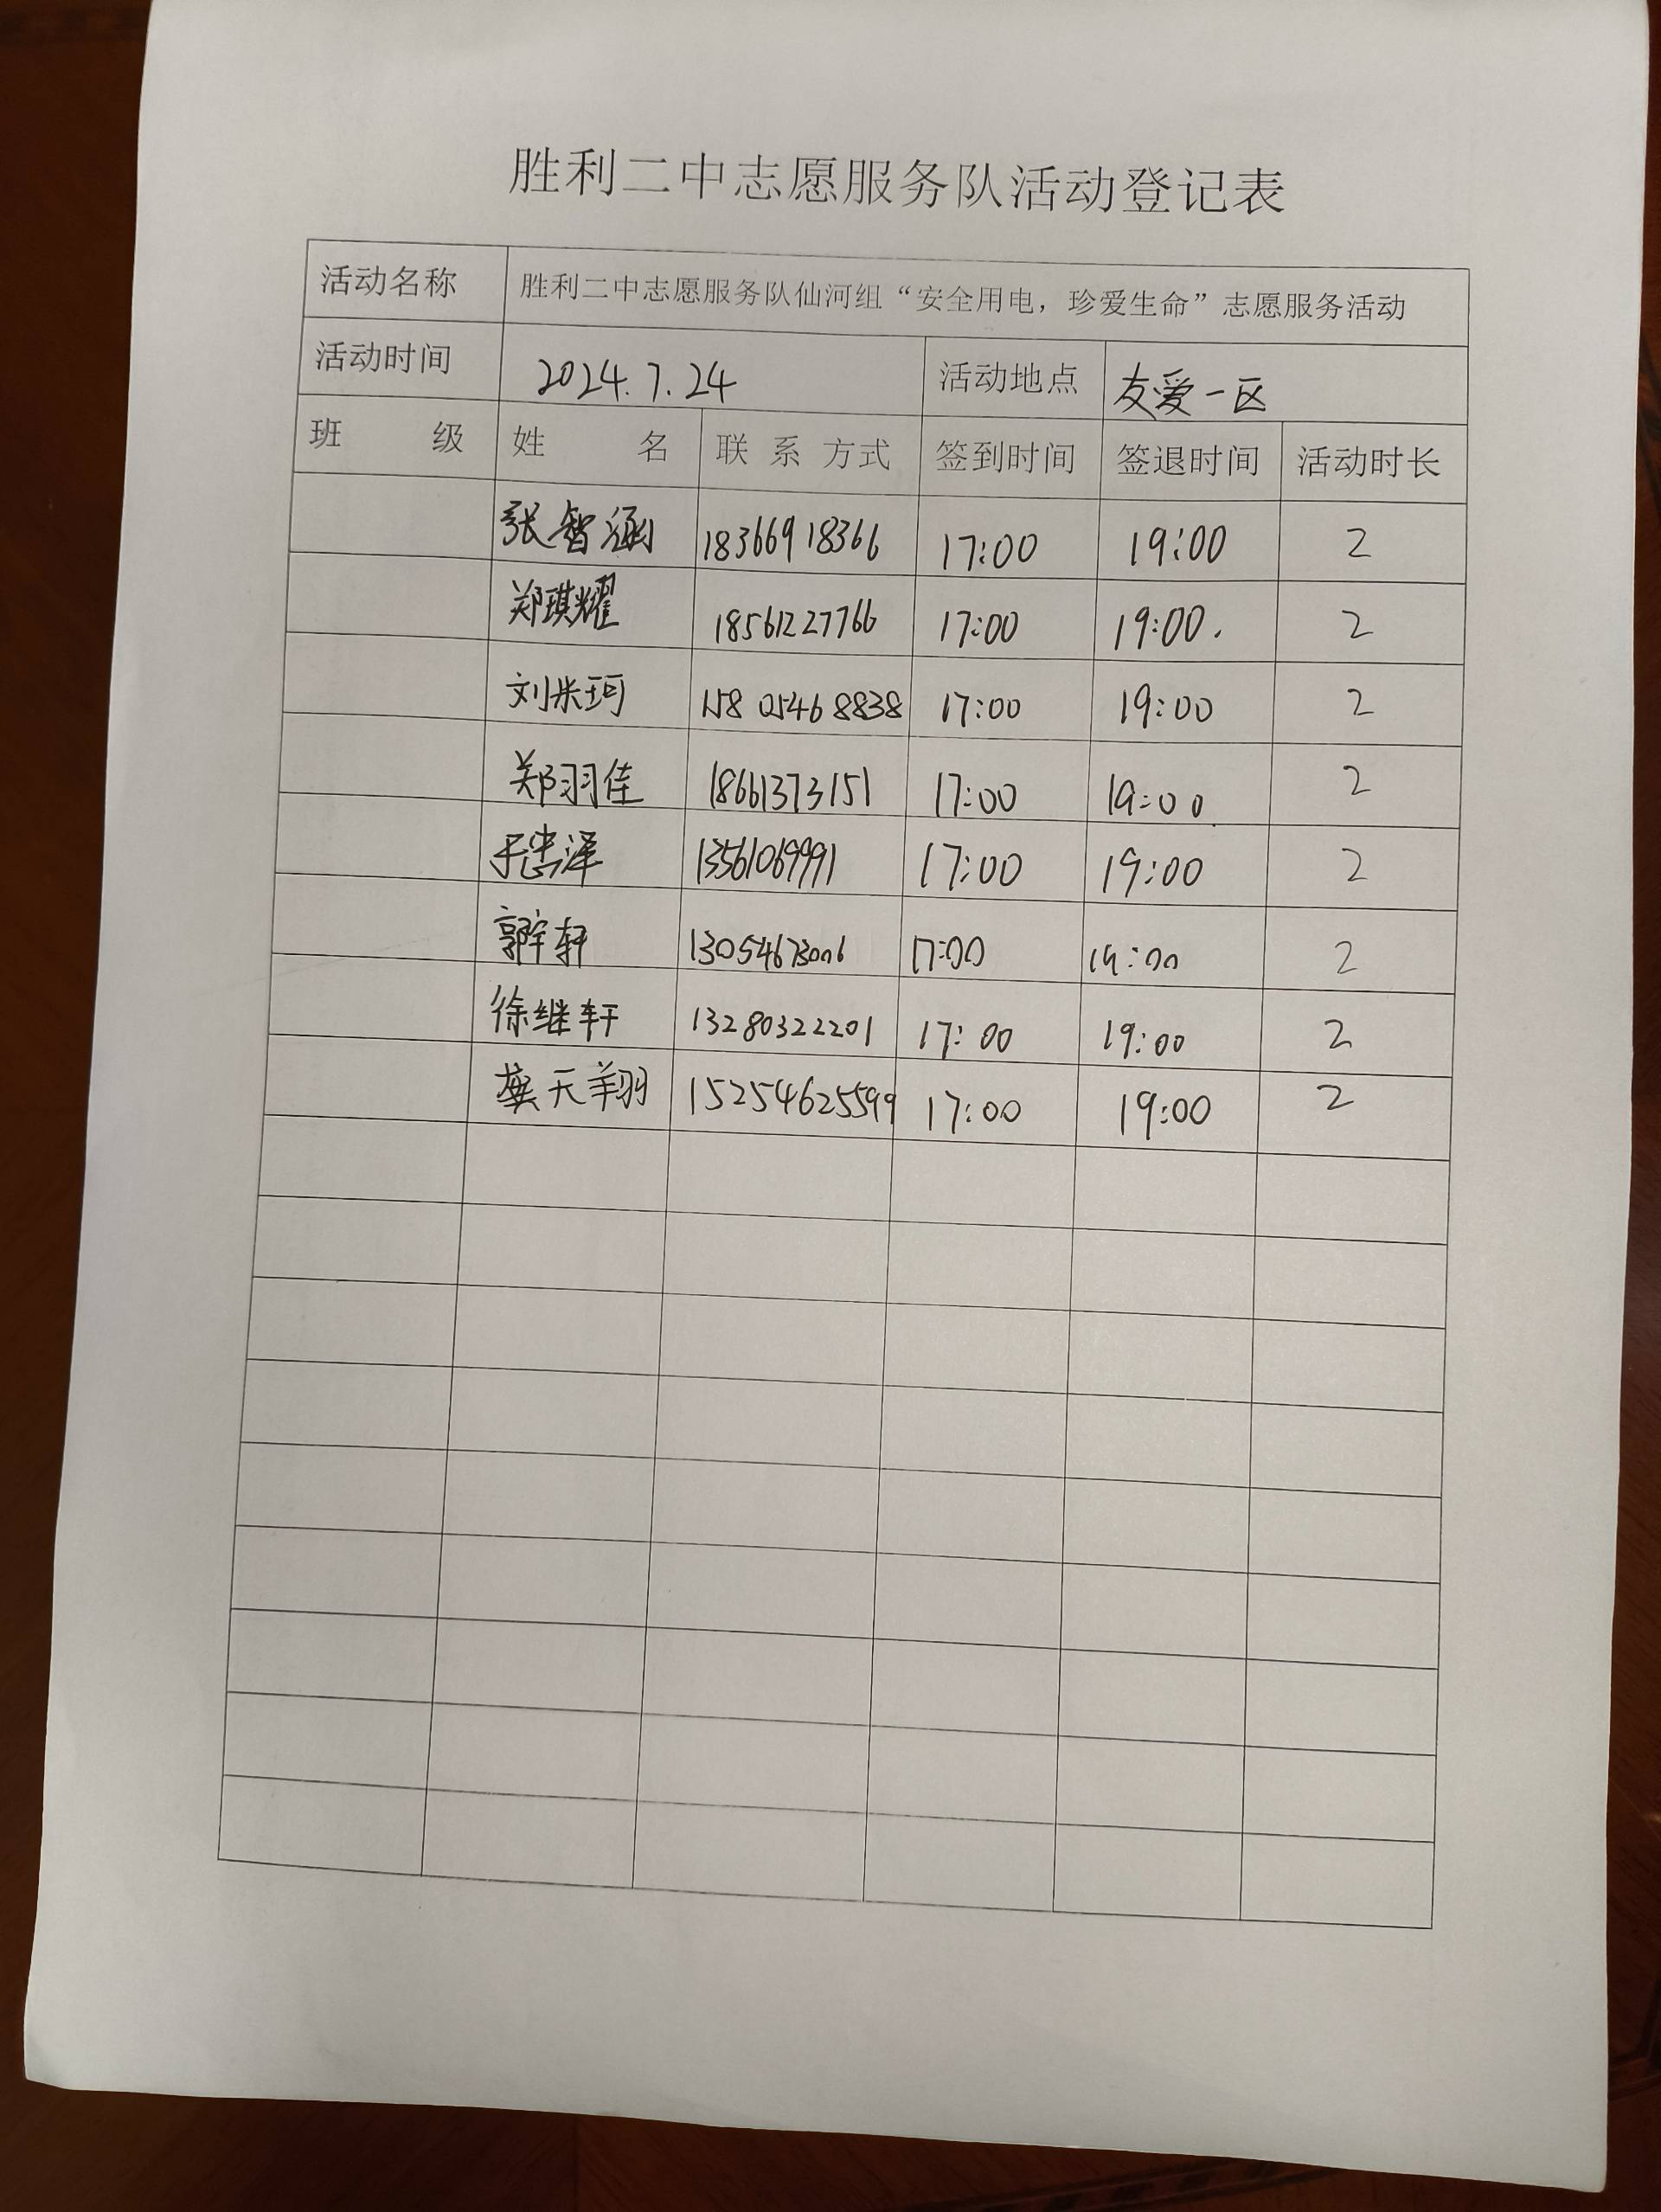 胜利二中志愿服务队活动登记表
活动名称 胜利二中志愿服务队仙河组“安全用电，珍爱生命”志愿服务活动
活动时间 2024.7.24 活动地点 友爱一区
班 级 姓 名 联系方式 签到时间 签退时间 活动时长
张智涵 18366918366 17:00 19:00 2
郑琪耀 18561227766 17:00 19:00. 2
刘米珂 15805468838 17:00 19:00 2
郑羽佳 18661373151 17:00 19:00 2
于忠泽 13561069991 17:00 19:00 2
郭宇轩 13054673006 17:00 19:00 2
徐继轩 13280322201 17:00 19:00 2
龚天翔 15254625599 17:00 19:00 2